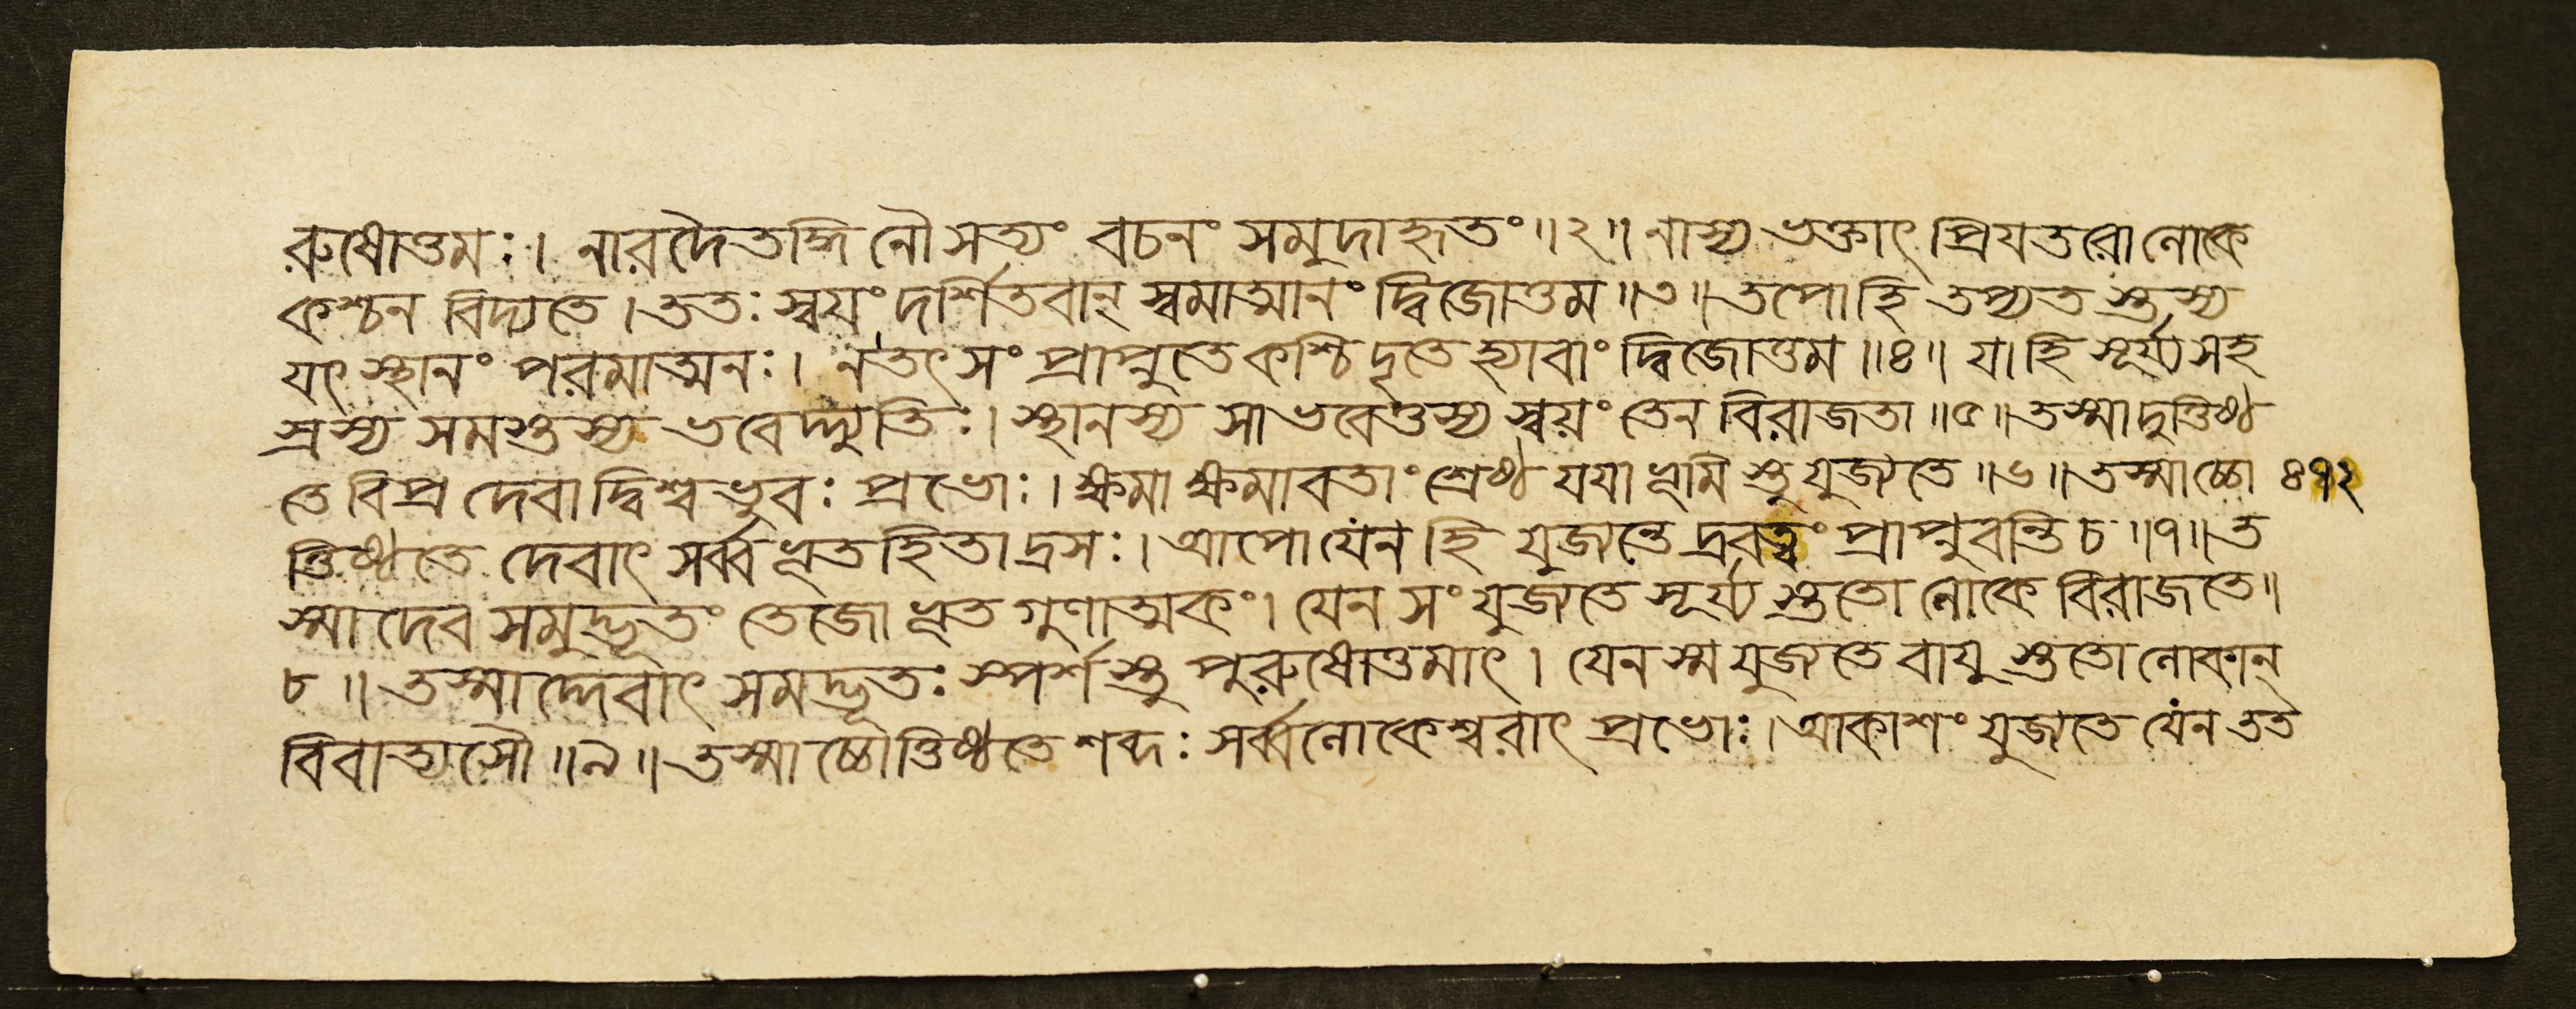 রুষোত্তমঃ। নারদৈতদ্ধি নৌ সত্যং বচনং সমুদাহৃতং॥২॥ নাস্য ভক্তাৎ প্রিযতরো লোকে
কশ্চন বিদ্যতে। ততঃ স্বয়ং দর্শিতবান্ স্বমাত্মানং দ্বিজোত্তম॥৩॥ তপো হি তপ্যতস্তস্য
যৎ স্থানং পরমাত্মনঃ। ন তৎ সংপ্রাপ্নুতে কশ্চিদৃতে হ্যাবাং দ্বিজোত্তম॥৪॥ যা হি সূর্য্যসহ
স্রস্য সমস্তস্য ভবেদ্দ্যুতিঃ। স্থানস্য সা ভবেত্তস্য স্বয়ং তেন বিরাজতা॥৫॥ তস্মাদুত্তিষ্ঠ
তে বিপ্র দেবাদ্বিশ্বভুবঃ প্রভোঃ। ক্ষমা ক্ষমাবতাং শ্রেষ্ঠ যযা ভূমিস্তু যুজ্যতে॥৬॥ তস্মাচ্চো ৪৭২
ত্তিষ্ঠতে দেবাৎ সর্ব্বভূতহিতাদ্রসঃ। আপো যেন হি যুজ্যন্তে দ্রবত্বং প্রাপ্নুবন্তি চ॥৭॥ ত
স্মাদেব সমুদ্ভূতং তেজো ভূতগুণাত্মকং। যেন সংযুজ্যতে সূর্য্যস্ততো লোকে বিরাজতে॥
৮॥ তস্মাদ্দেবাৎ সমদ্ভূতঃ স্পর্শস্তু পুরুষোত্তমাৎ। যেন স্ম যুজ্যতে বাযুস্ততো লোকান্
বিবাত্যসৌ॥৯॥ তস্মাচ্চোত্তিষ্ঠতে শব্দঃ সর্ব্বলোকেশ্বরাৎ প্রভোঃ। আকাশং যুজ্যতে যেন তত